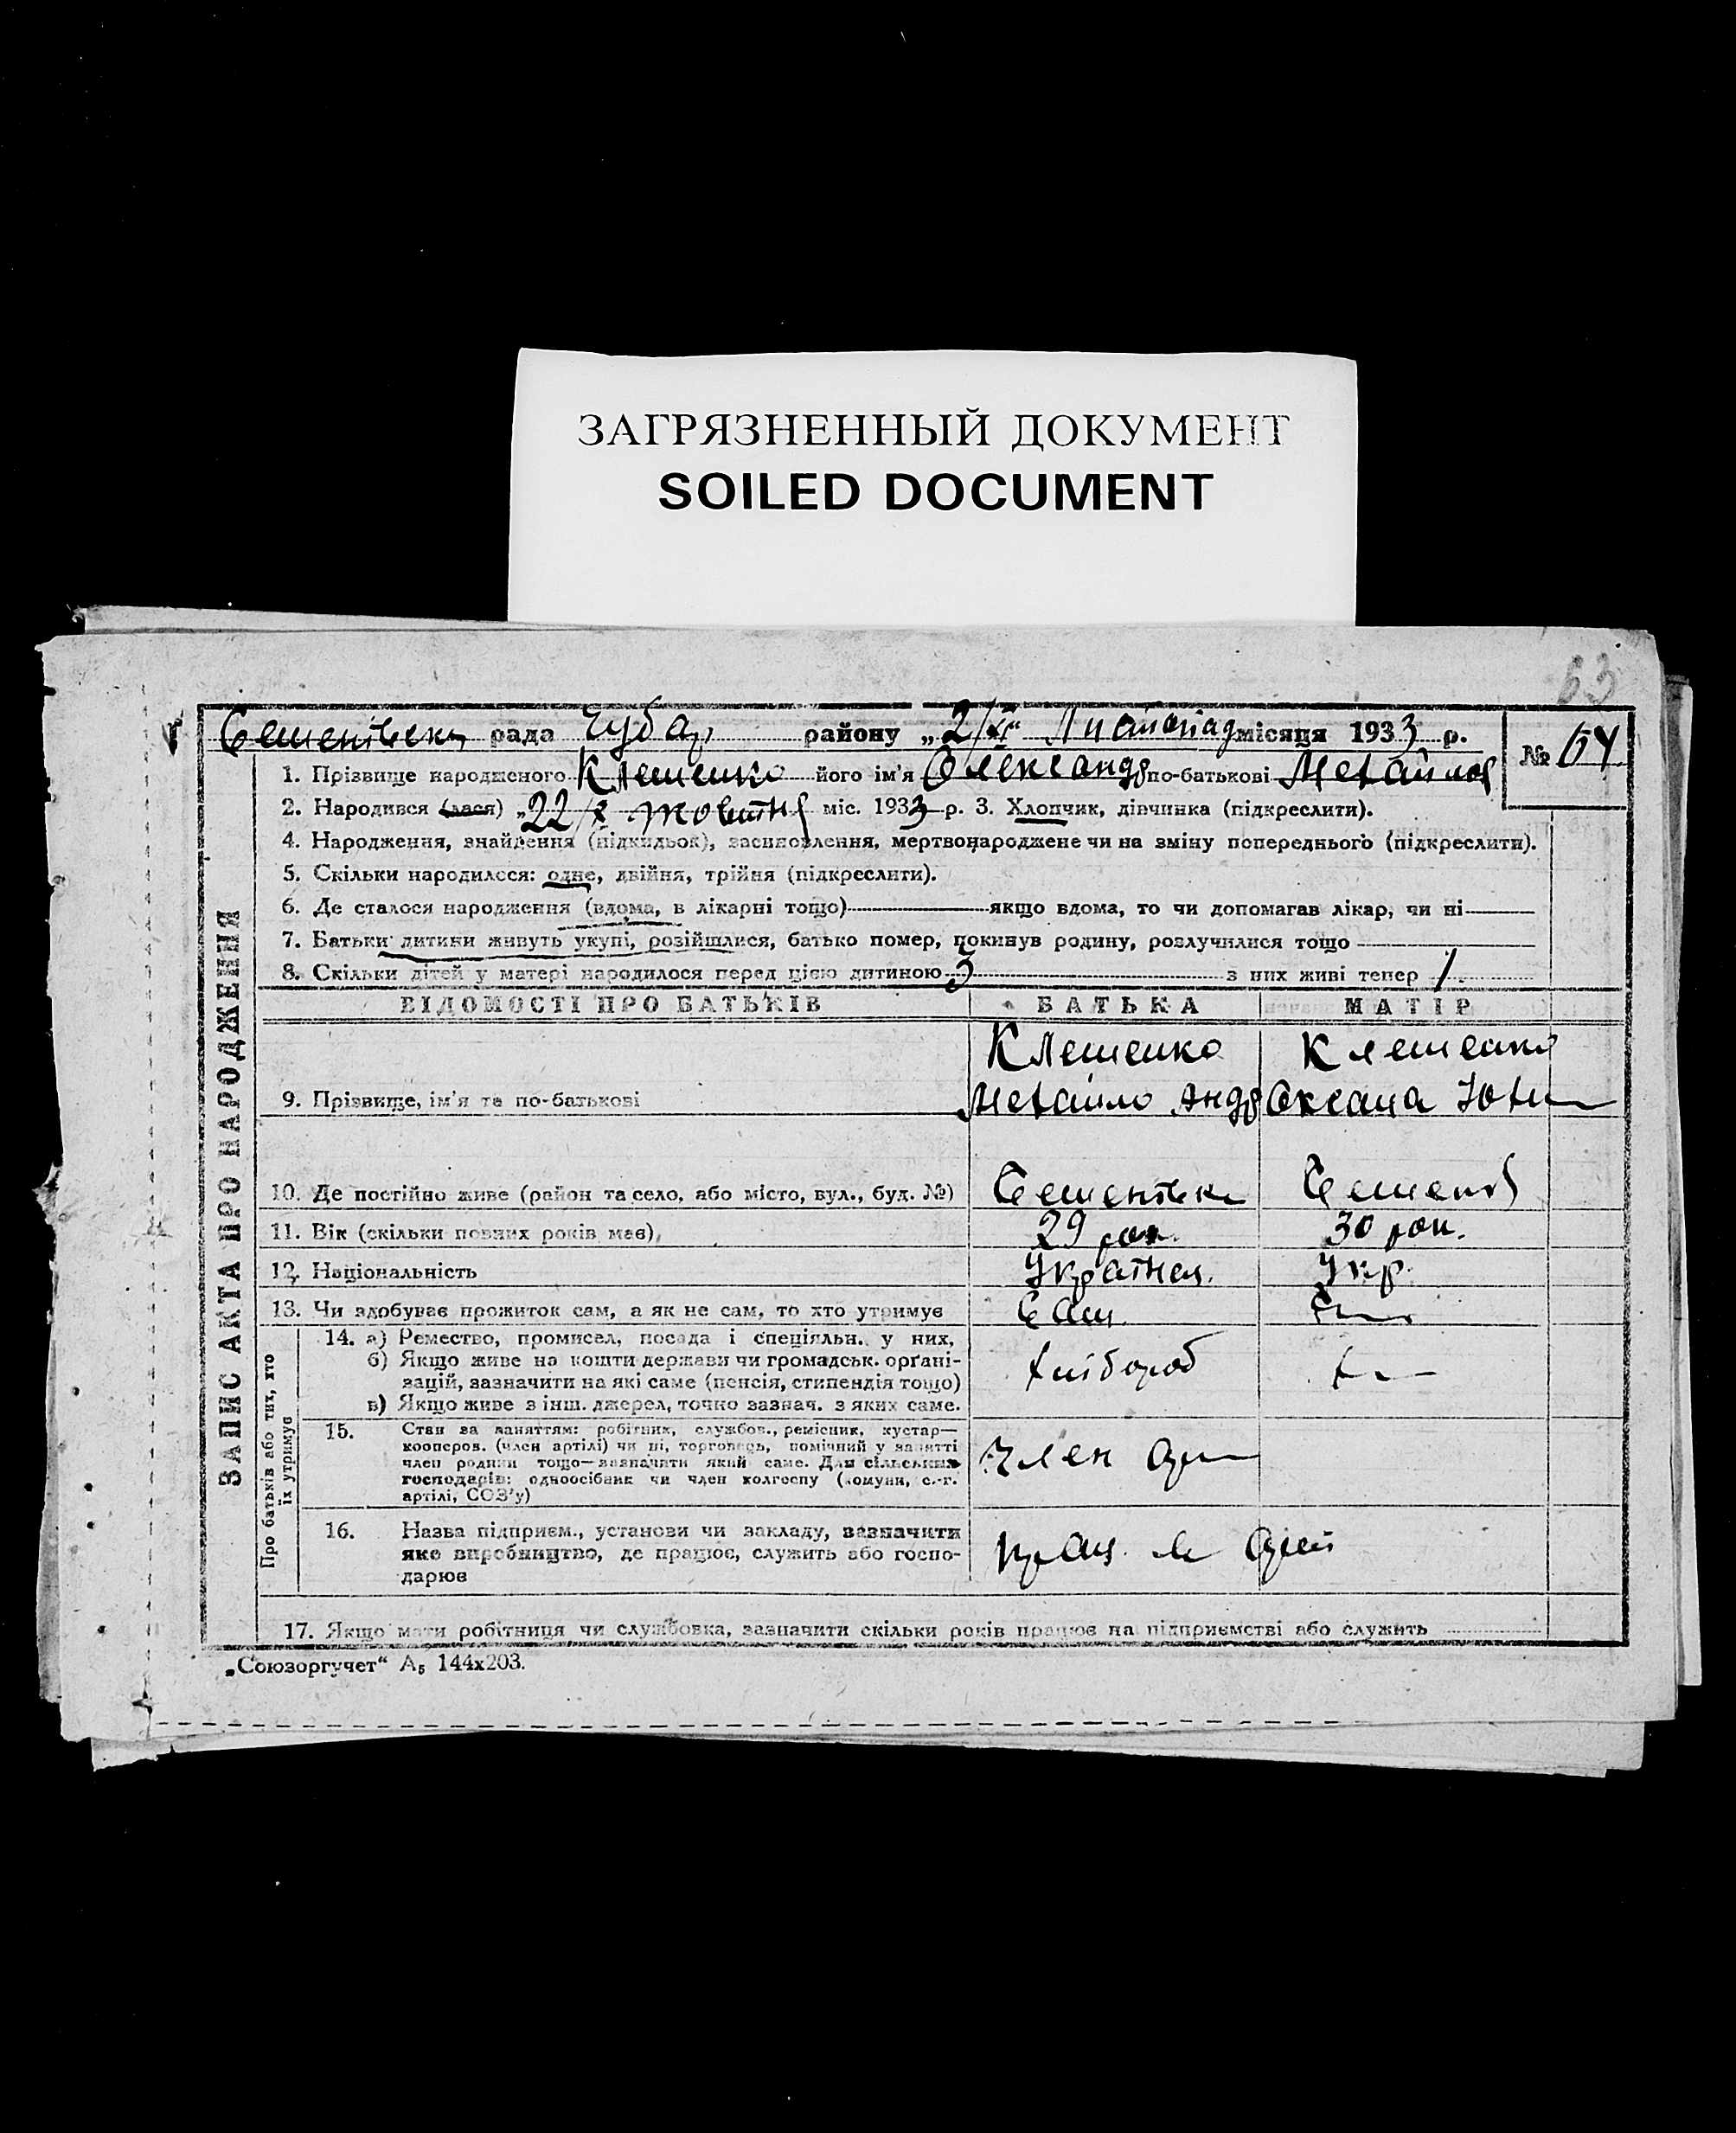 ЗАГРЯЗНЕННЫЙ ДОКУМЕНТ
SOILED DOCUMENT
63
рада Чубар. району „2/XI“ Листопад місяця 1933 р.
№ 64
1. Прізвище народженого Клеменко його ім'я Олександр по-батькові
2. Народився (лася) „22/X жовтня міс. 1933 р. 3. Хлопчик, дівчинка (підкреслити).
4. Народження, знайдення (підкидьок), засиновлення, мертвонароджене чи на зміну попереднього (підкреслити).
5. Скільки народилося: одне, двійня, трійня (підкреслити).
6. Де сталося народження (вдома, в лікарні тощо) якщо вдома, то чи допомагав лікар, чи ні
7. Батьки дитини живуть укупі, розійшлися, батько помер, покинув родину, розлучилися тощо
8. Скільки дітей у матері народилося перед цією дитиною 3 з них живі тепер 1
ЗАПИС АКТА ПРО НАРОДЖЕННЯ
ВІДОМОСТІ ПРО БАТЬКІВ БАТЬКА МАТІР
Клеменко Клеменко
9. Прізвище, ім'я та по-батькові Мехайло Андр Оксана
10. Де постійно живе (район та село, або місто, вул., буд. №)
11. Вік (скільки повних років має) 29 рок. 30 рок.
12. Національність Українец. Укр.
13. Чи здобуває прожиток сам, а як не сам, то хто утримує Сам
Про батьків або тих, хто їх утримує
14. а) Ремество, промисел, посада і спеціяльн. у них,
б) Якщо живе на кошти держави чи громадськ. орґані-
зацій, зазначити на які саме (пенсія, стипендія тощо)
в) Якщо живе з інш. джерел, точно зазнач. з яких саме.
хлібороб
15. Стан за заняттям: робітник, службов., ремісник, кустар—
кооперов. (член артілі) чи ні, торговець, помічний у занятті
член родини тощо—зазначити який саме. Для сільських
господарів: одноосібник чи член колгоспу (комуни, с.-г.
артілі, СОЗ'у)
Член
16. Назва підприєм., установи чи закладу, зазначити
яке виробництво, де працює, служить або госпо-
дарює
17. Якщо мати робітниця чи службовка, зазначити скільки років працює на підприємстві або служить
„Союзоргучет“ А5 144х203.